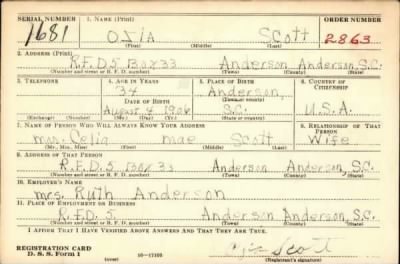 SERIAL NUMBER 1. NAME (Print) ORDER NUMBER
1681 Ozia Scott 2863
(First) (Middle) (Last)
2. ADDRESS (Print)
R.F.D 5 Box 33 Anderson Anderson, S.C.
(Number and street or R. F. D. number) (Town) (County) (State)
3. TELEPHONE 4. AGE IN YEARS 5. PLACE OF BIRTH 6. COUNTRY OF CITIZENSHIP
34 Anderson,
DATE OF BIRTH (Town or county)
August 4 1906 S.C. U.S.A.
(Exchange) (Number) (Mo.) (Day) (Yr.) (State or country)
7. NAME OF PERSON WHO WILL ALWAYS KNOW YOUR ADDRESS 8. RELATIONSHIP OF THAT PERSON
mrs. Celia mae Scott Wife
(Mr., Mrs., Miss) (First) (Middle) (Last)
9. ADDRESS OF THAT PERSON
R.F.D. 5 Box 33 Anderson Anderson, S.C.
(Number and street or R. F. D. number) (Town) (County) (State)
10. EMPLOYER'S NAME
mrs. Ruth Anderson
11. PLACE OF EMPLOYMENT OR BUSINESS
R.F.D. 5 Anderson Anderson S.C.
(Number and street or R. F. D. number) (Town) (County) (State)
I AFFIRM THAT I HAVE VERIFIED ABOVE ANSWERS AND THAT THEY ARE TRUE.
REGISTRATION CARD
D. S. S. Form 1 (over) 16—17105 Scott
(Registrant's signature)